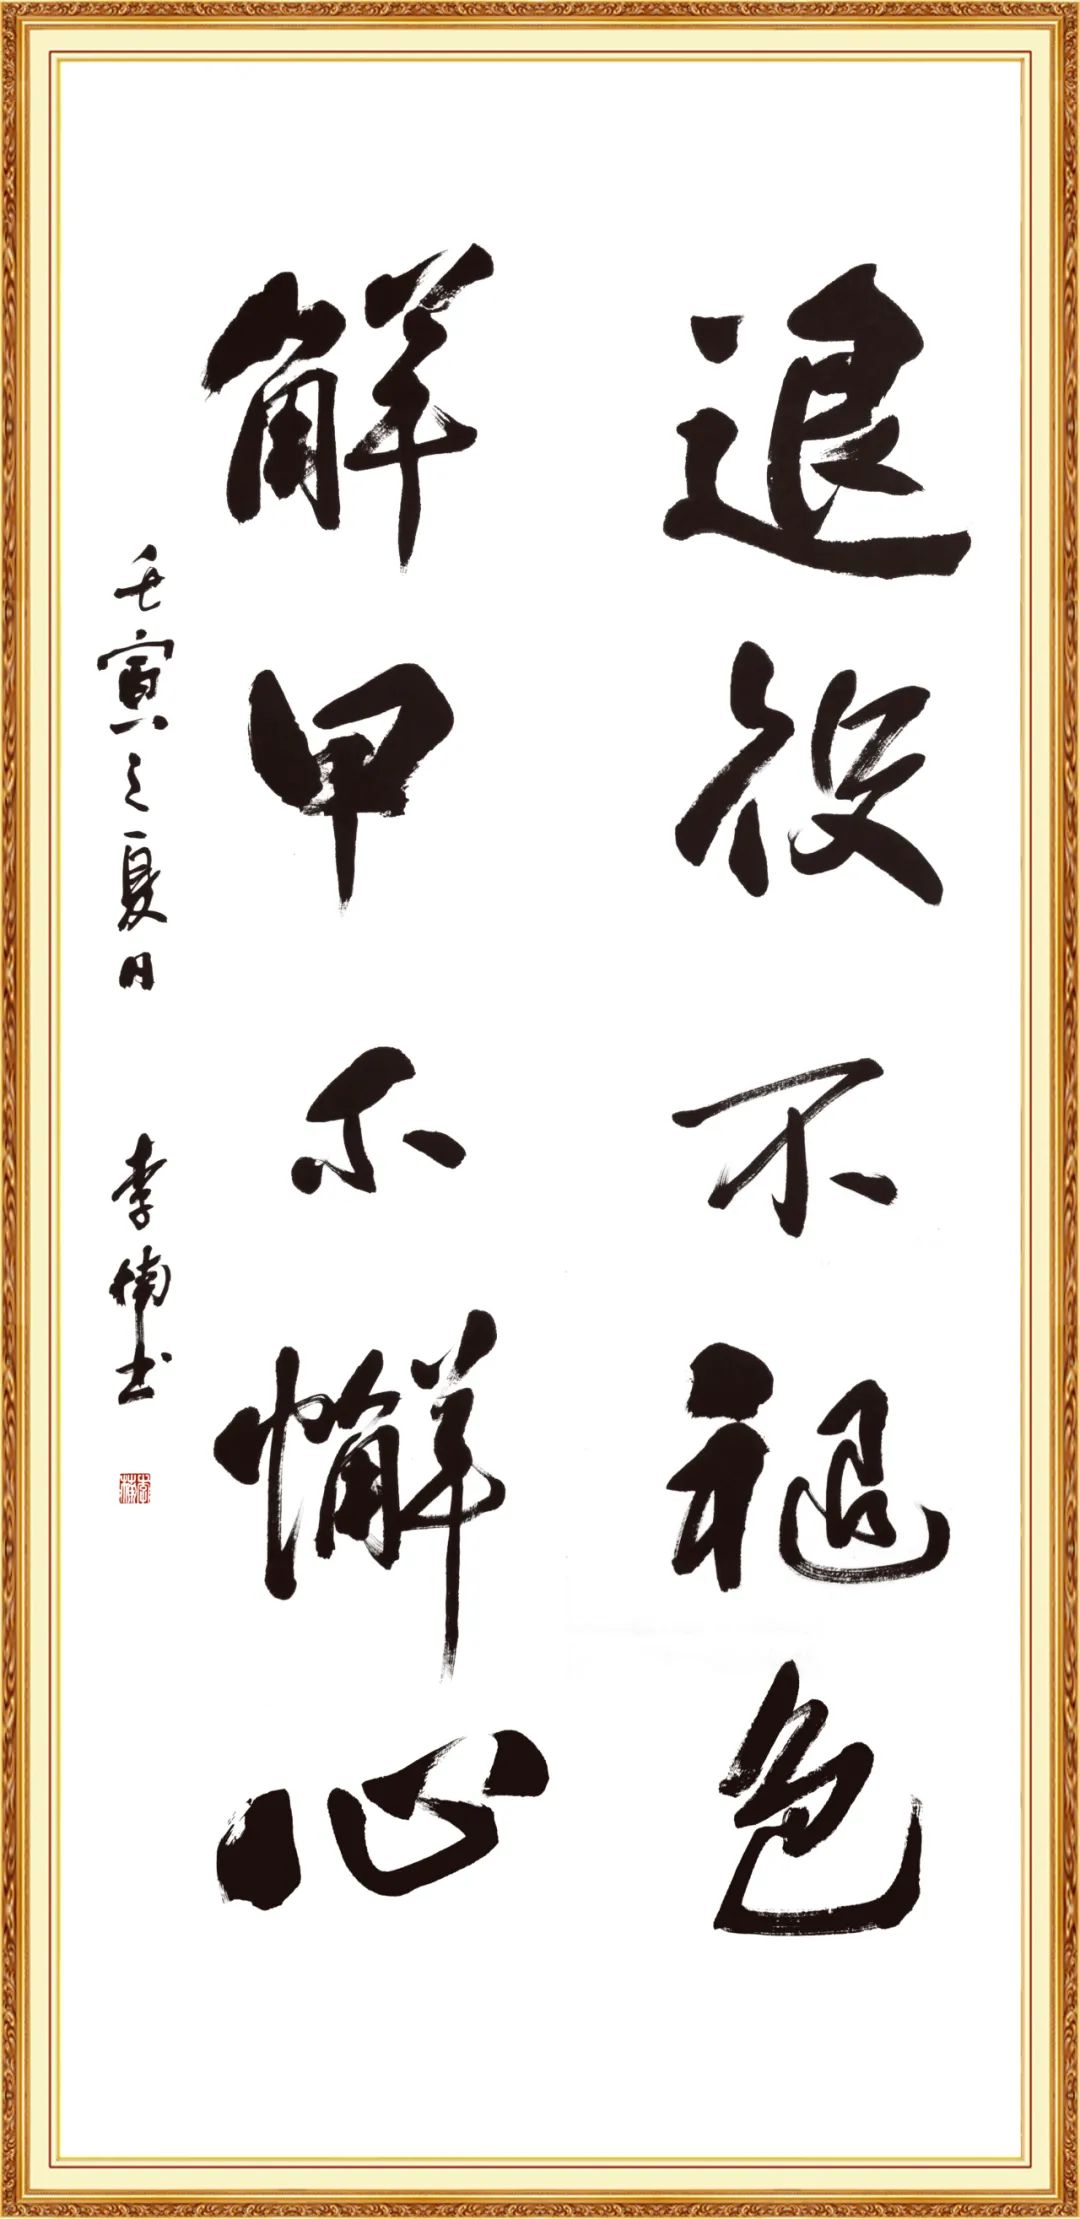 退役不褪色
解甲不懈心
壬寅之夏月
李楠书